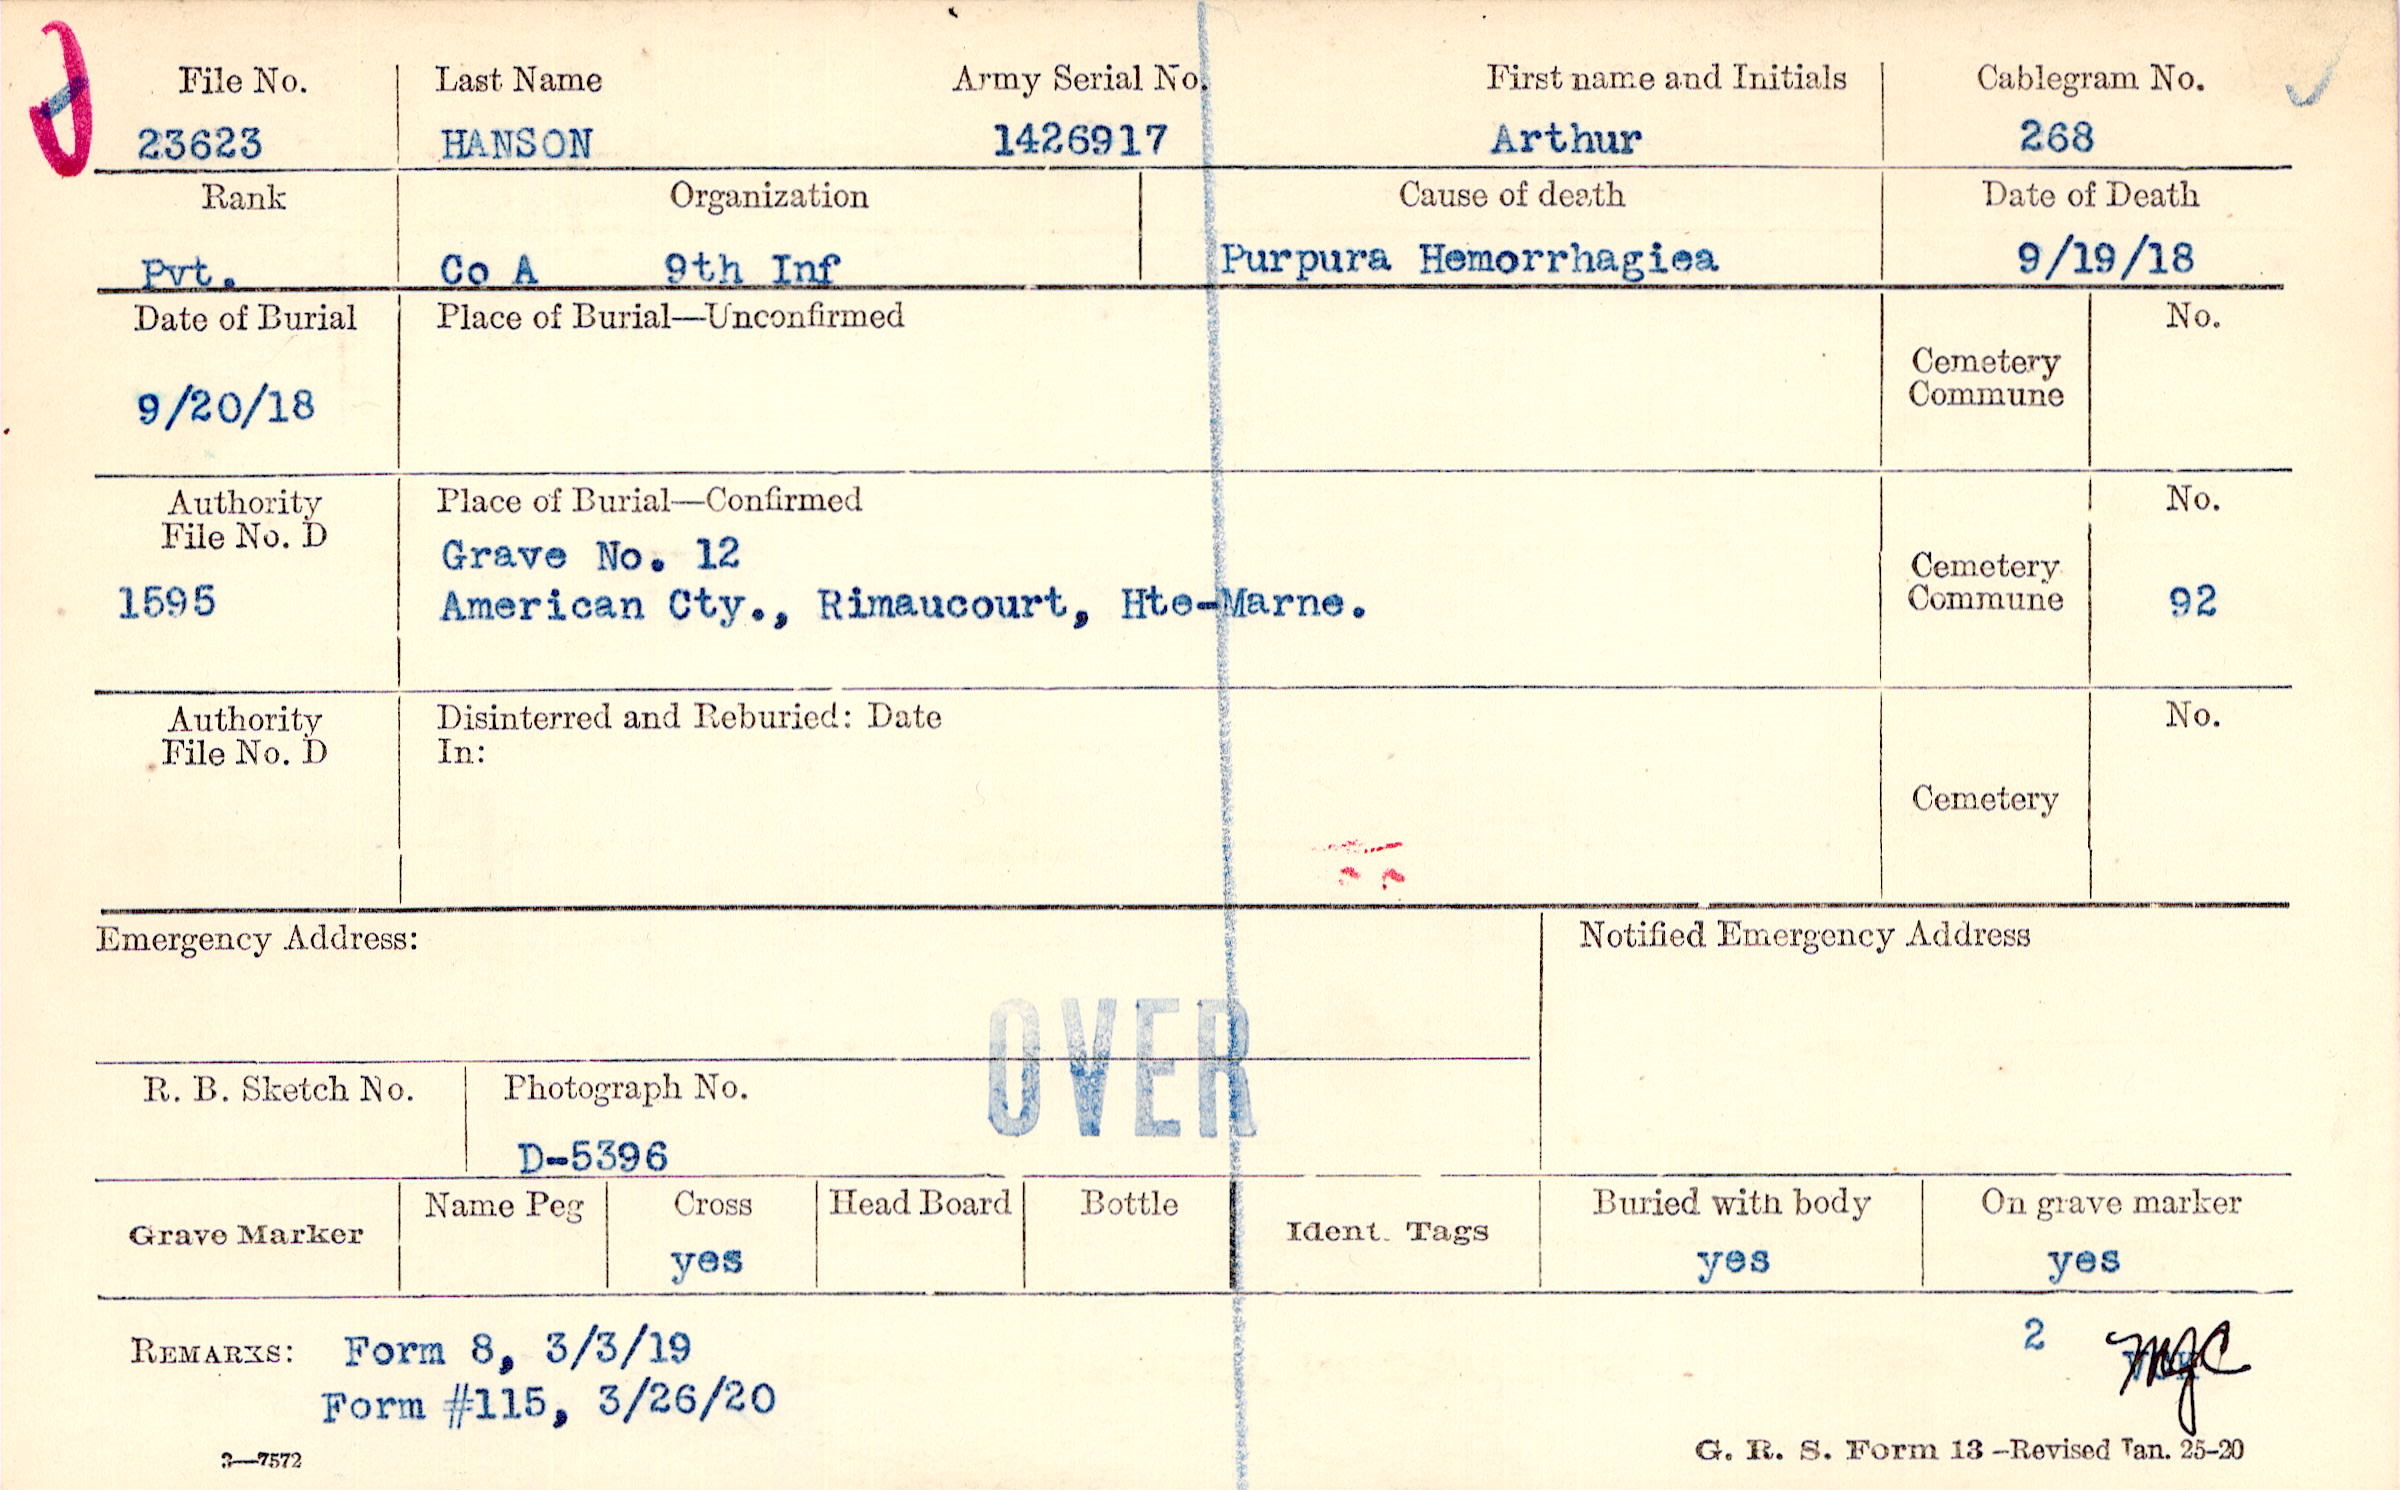 File No. Last Name Army Serial No. First name and Initials Cablegram No.
23623 HANSON 1426917 Arthur 268
Rank Organization Cause of death Date of Death
Pvt. Co A 9th Inf Purpura Hemorrhagiea 9/19/18
Date of Burial Place of Burial—Unconfirmed No.
Cemetery
Commune
9/20/18
Authority Place of Burial—Confirmed No.
File No. D
Grave No. 12
Cemetery
1595 American Cty., Rimaucourt, Hte-Marne. Commune 92
Authority Disinterred and Reburied: Date No.
File No. D In:
Cemetery
Emergency Address: Notified Emergency Address
OVER
R. B. Sketch No. Photograph No.
D-5396
Grave Marker Name Peg Cross Head Board Bottle Ident. Tags Buried with body On grave marker
yes yes yes
REMARKS: Form 8, 3/3/19 2 MJC
Form #115, 3/26/20
3—7572 G. R. S. Form 13—Revised Jan. 25-20